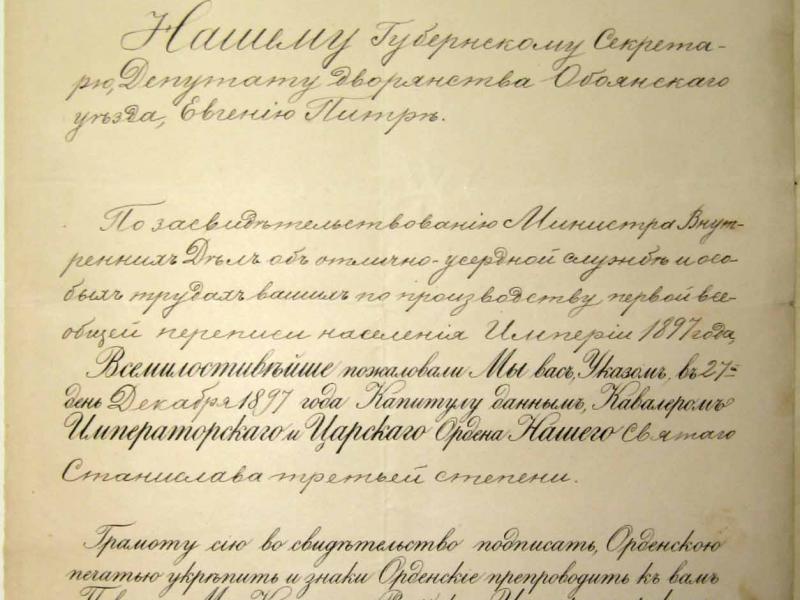 Нашему Губернскому Секрета-
рю, Депутату дворянства Обоянскаго
уѣзда, Евгенію Питрѣ.
По засвидѣтельствованію Министра Внут-
реннихъ Дѣлъ объ отлично-усердной службѣ и осо-
быхъ трудахъ вашихъ по производству первой все-
общей переписи населенія Имперіи 1897 года,
Всемилостивѣйше пожаловали Мы васъ, Указомъ, въ 27-
день Декабря 1897 года Капитулу даннымъ, Кавалеромъ
Императорскаго и Царскаго Ордена Нашего Святаго
Станислава третьей степени.
Грамоту сію во свидѣтельство подписать, Орденскою
печатью укрѣпить и знаки Орденскіе препроводить къ вамъ